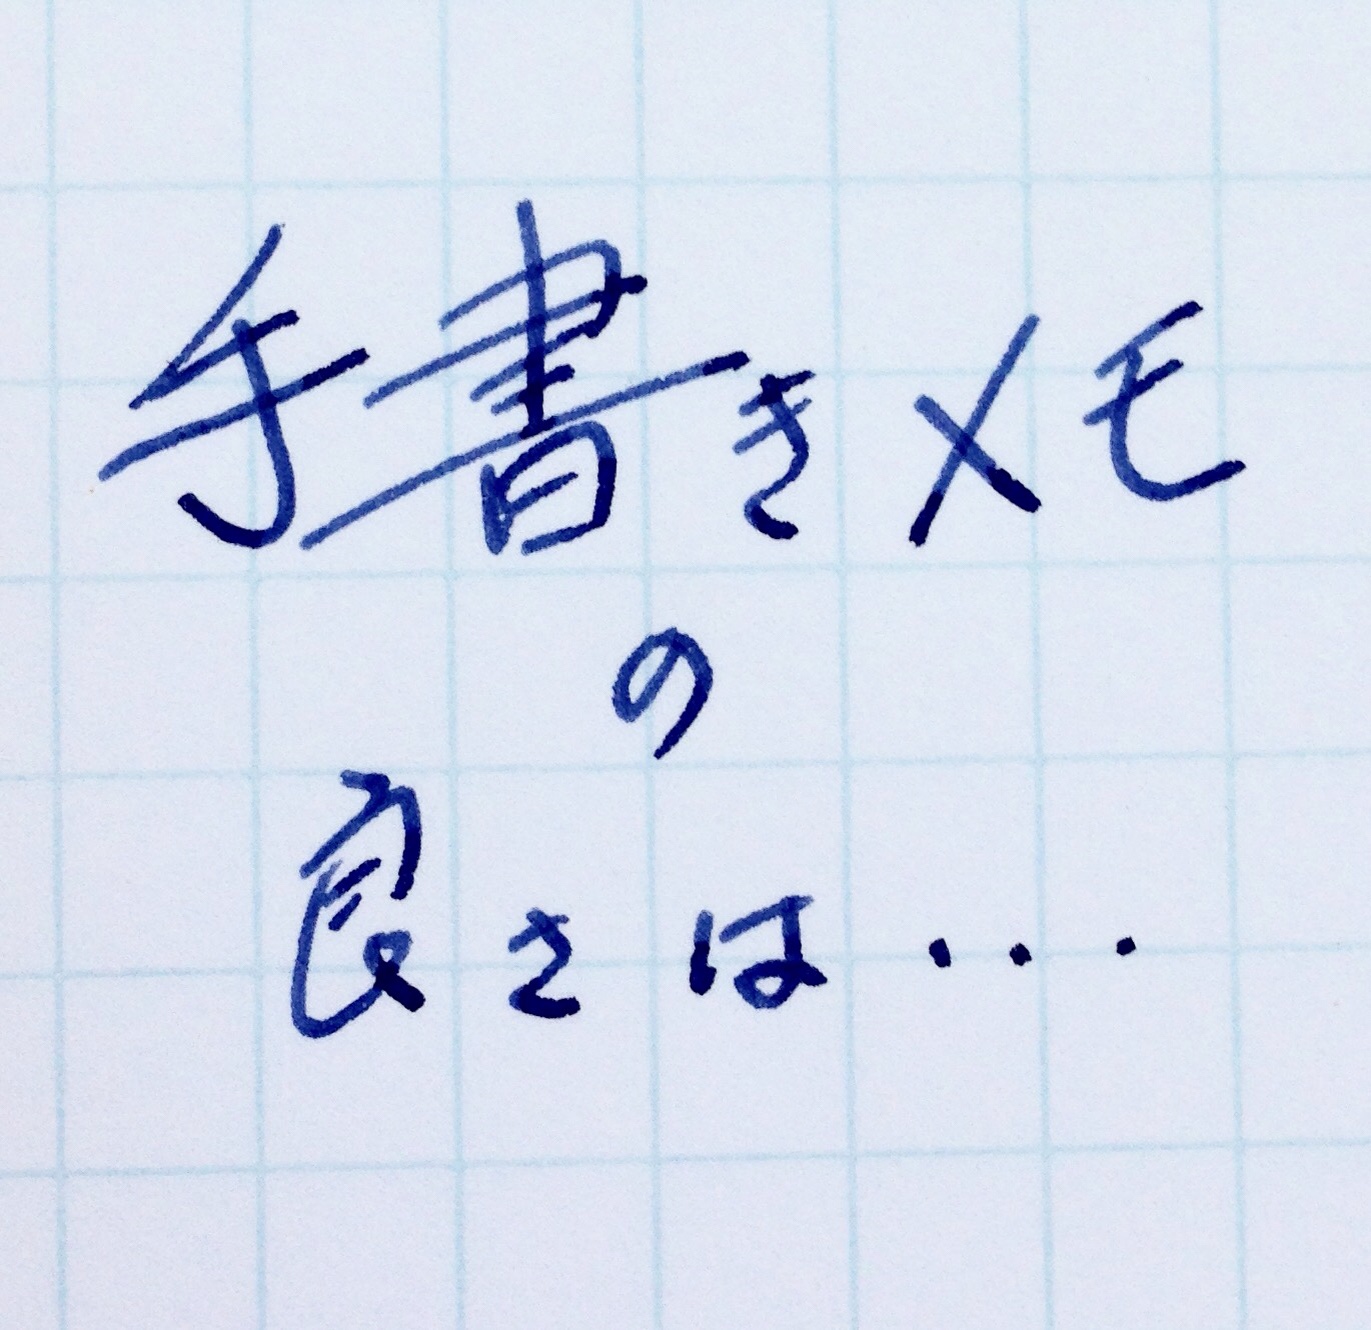 手書きメモ
の
良さは・・・